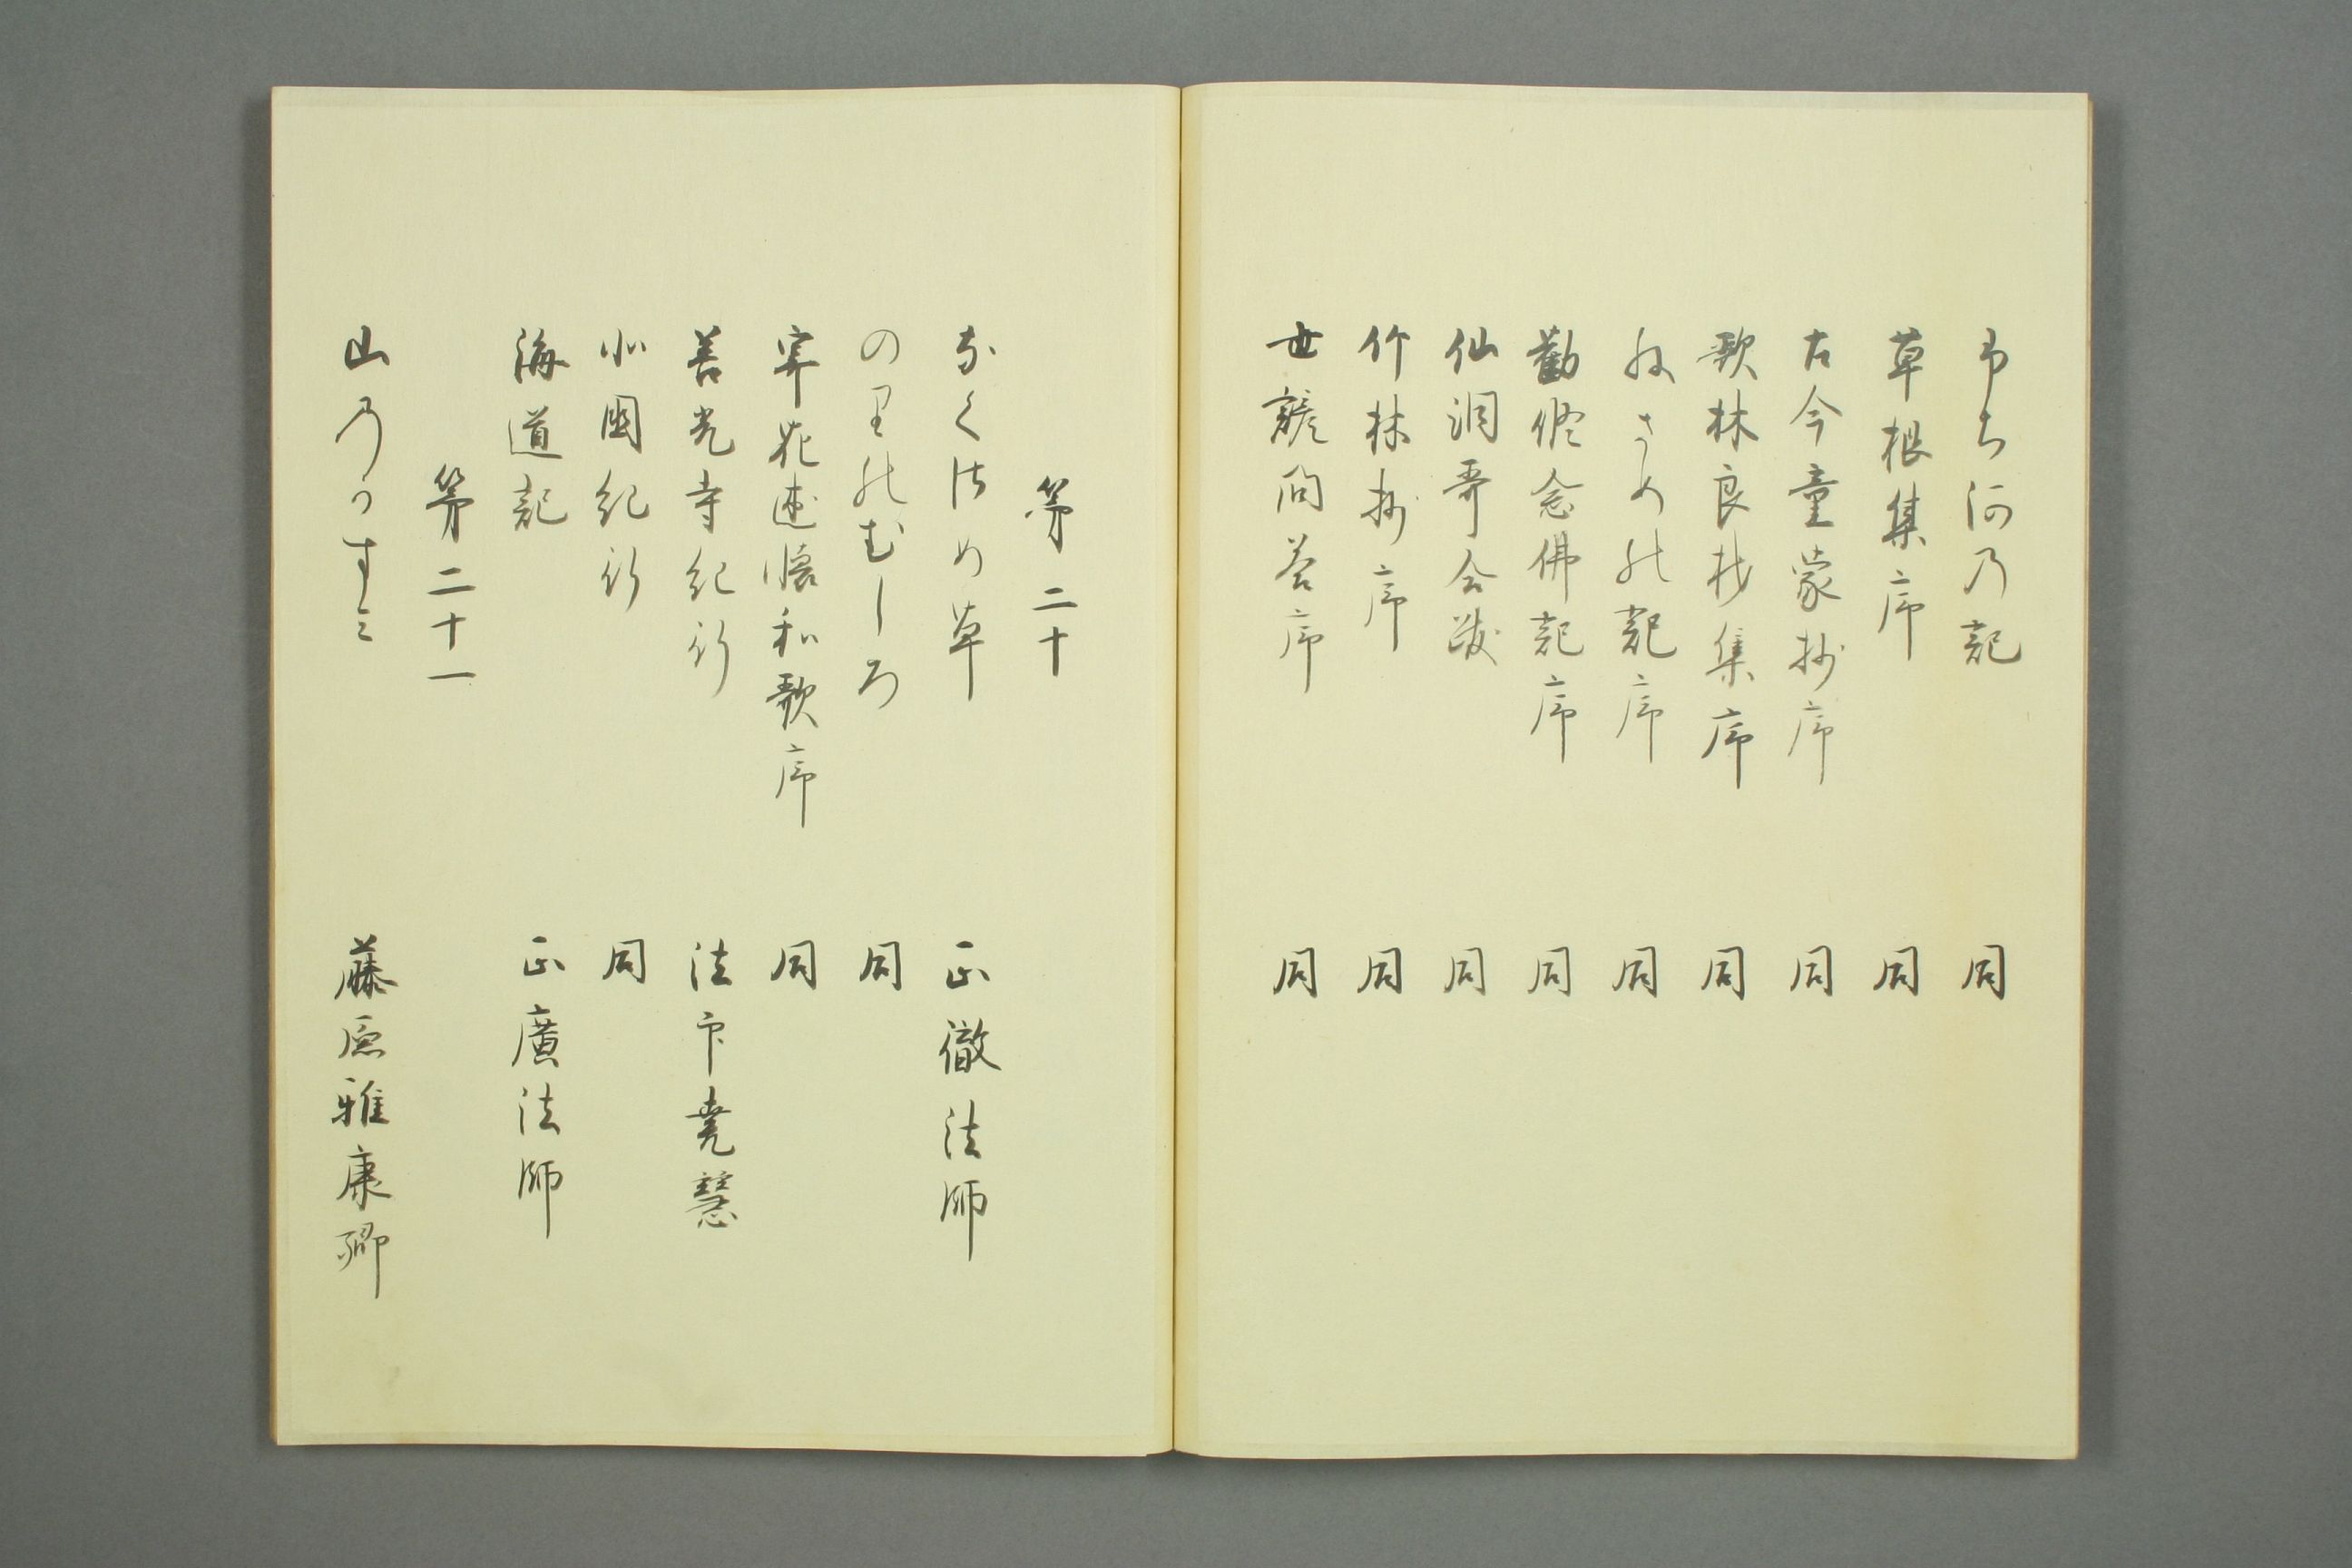 ふち河乃記　同
草根集序　同
古今童蒙抄序　同
歌林良材集序　同
ねさめの記序　同
勸修念佛記序　同
仙洞哥合跋　同
竹林抄序　同
世諺問答序　同
第二十
なくさめ草　正徹法師
のりのむしろ　同
寄花述懷和歌序　同
善光寺紀行　法印堯慧
北國紀行　同
海道記　正廣法師
第二十一
山乃かすミ　藤原雅康卿